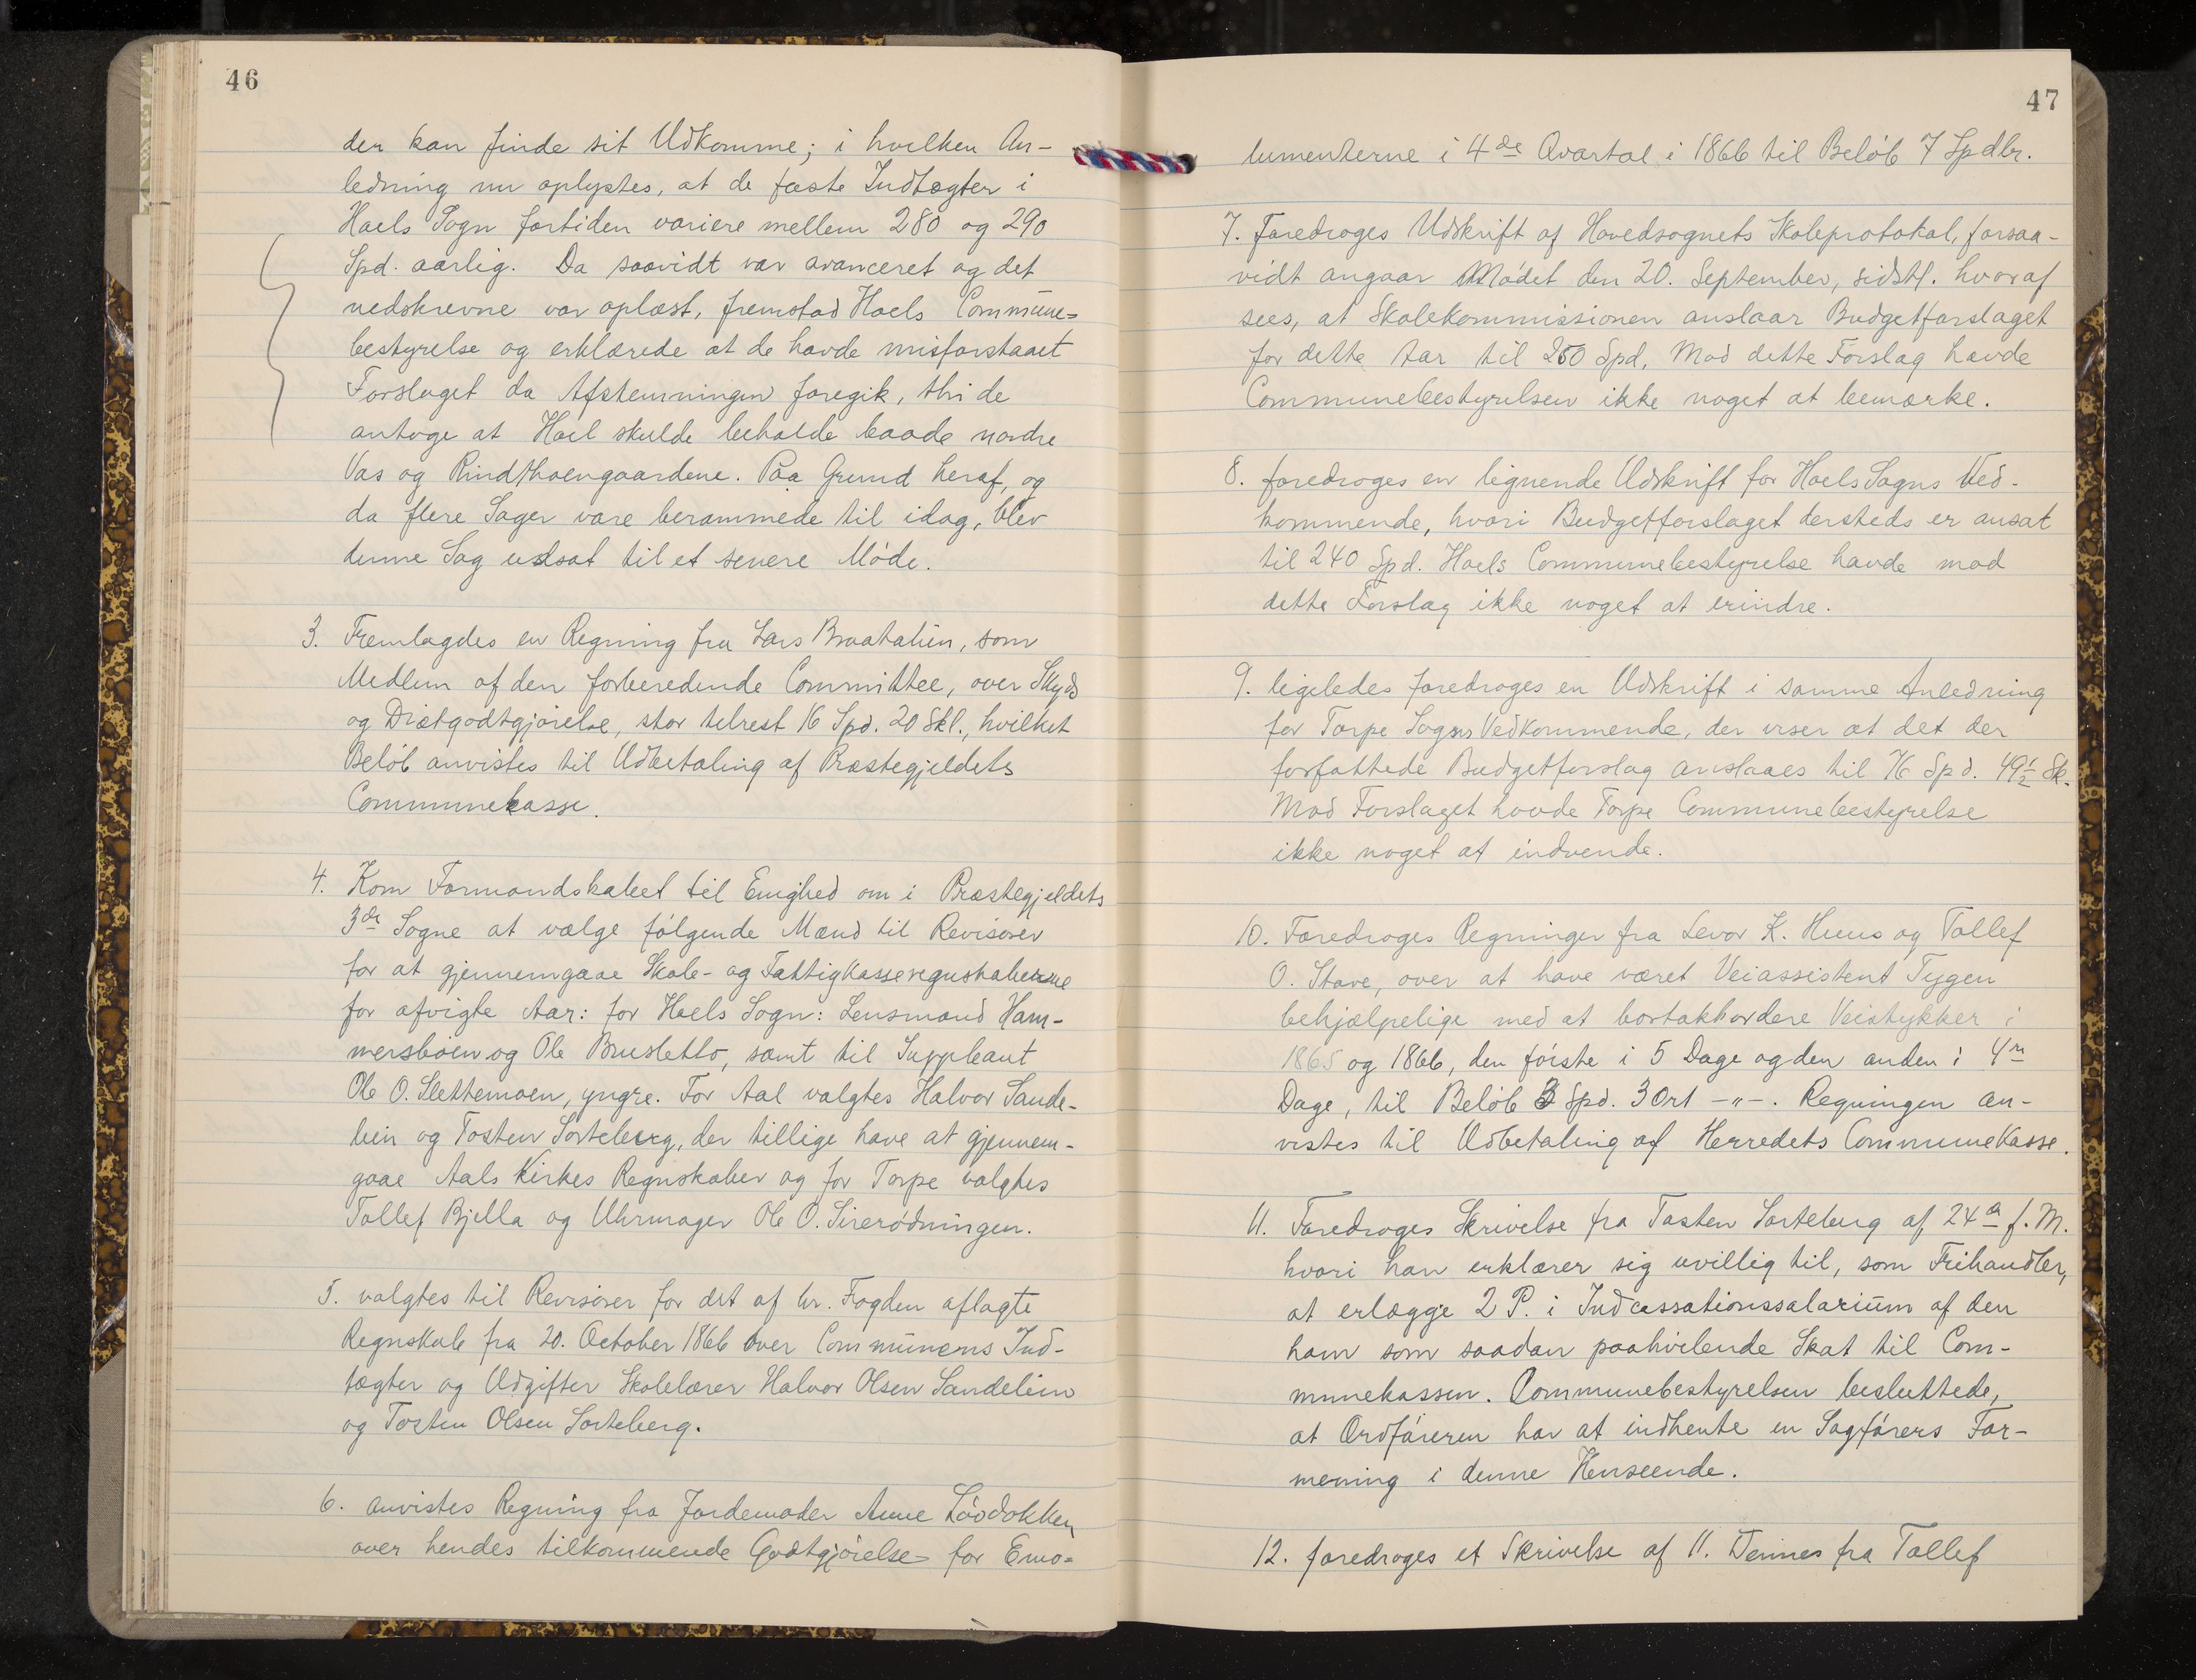 46
der kan finde sit Udkomme; i hvilken An-
ledning nu oplystes, at de faste Indtægter i
Hoels Sogn fortiden variere mellem 280 og 290
Spd. aarlig. Da saavidt var avanceret og det
nedskrevne var oplæst, fremstod Hoels Commune=
bestyrelse og erklærede at de havde misforstaaet
Forslaget da Afstemningen foregik, thi de
antoge at Hoel skulde beholde baade nordre
Vas og Rindthoengaardene. Paa Grund heraf, og
da flere Sager vare berammede til idag, blev
denne Sag udsat til et senere Møde.
3. Fremlagdes en Regning fra Lars Braatalien, som
Medlem af den forberedende Committee, over Skyds
og Diætgodtgjørelse, stor tilrest 16 Spd. 20 Skl., hvilket
Beløb anvistes til Udbetaling af Præstegjeldets
Communekasse.
4. Kom Formandskabet til Enighed om i Præstegjeldets
3de Sogne at vælge følgende Mænd til Revisorer
for at gjennemgaae Skole- og Fattigkasseregnskaberne
for afvigte Aar: for Hoels Sogn: Lensmand Ham-
mersbøen og Ole Brusletto, samt til Suppleant
Ole O. Slettemoen, yngre. For Aal valgtes Halvor Sande-
lein og Tosten Sorteberg, der tillige have at gjennem-
gaae Aals Kirkes Regnskaber og for Torpe valgtes
Tollef Bjella og Uhrmager Ole O. Sirerødningen.
5. valgtes til Revisorer for det af hr. Fogden aflagte
Regnskab fra 20. October 1866 over Communens Ind-
tægter og Udgifter Skolelærer Halvor Olsen Sandelien
og Tosten Olsen Sorteberg.
6. anvistes Regning fra Jordemoder Anne Løvdokken
over hendes tilkommende Godtgjørelse for Emo=
47
lumenterne i 4de Qvartal i 1866 til Beløb 7 Spdlr.
7. Foredroges Udskrift af Hovedsognets Skoleprotokol, forsaa-
vidt angaar Mødet den 20. September, sidstl. hvoraf
sees, at Skolekommissionen anslaar Budgetforslaget
for dette Aar til 250 Spd. Mod dette Forslag havde
Communebestyrelsen ikke noget at bemærke.
8. foredroges en lignende Udskrift for Hoels Sogns Ved-
kommende, hvori Budgetforslaget dersteds er ansat
til 240 Spd. Hoels Communebestyrelse havde mod
dette Forslag ikke noget at erindre.
9. ligeledes foredroges en Udskrift i samme Anledning
for Torpe Sogns Vedkommende, der viser at det der
forfattede Budgetforslag anslaaes til 76 Spd. 49½ Sk.
Mod Forslaget havde Torpe Communebestyrelse
ikke noget at indvende.
10. Foredroges Regninger fra Levor K. Huus og Tollef
O. Stave, over at have været Veiassistent Tygen
behjælpelige med at bortakkordere Veistykker i
1865 og 1866, den første i 5 Dage og den anden i 4re
Dage, til Beløb 3 Spd. 3 Ort -"-. Regningen an-
vistes til Udbetaling af Herredets Communekasse.
11. Foredroges Skrivelse fra Tosten Sorteberg af 24de f. M.
hvori han erklærer sig uvillig til, som Frihandler,
at erlægge 2 P. i Indcassationssalarium af den
ham som saadan paahvilende Skat til Com-
munekassen. Communebestyrelsen besluttede,
at Ordføreren har at indhente en Sagførers For-
mening i denne Henseende.
12. foredroges et Skrivelse af 11. Dennes fra Tollef